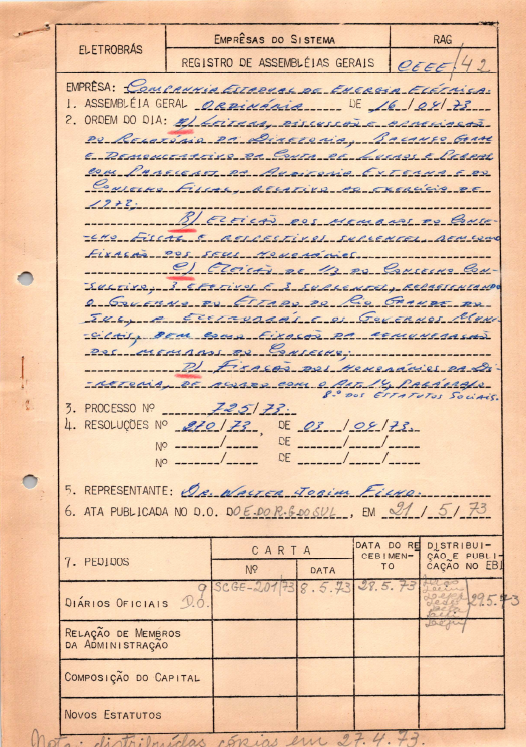 ELETROBRÁS
EMPRÊSAS DO SISTEMA
RAG
REGISTRO DE ASSEMBLÉIAS GERAIS
CEEE/42
EMPRÊSA: COMPANHIA ESTADUAL DE ENERGIA ELÉTRICA.
1. ASSEMBLÉIA GERAL ORDINÁRIA DE 16/04/73
2. ORDEM DO DIA: A) LEITURA, DISCUSSÃO E APRECIAÇÃO
DO RELATÓRIO DA DIRETORIA, BALANÇO GERAL
E DEMONSTRATIVO DA CONTA DE LUCROS E PERDAS
COM PARECERES DA AUDITORIA EXTERNA E DO
CONSELHO FISCAL, RELATIVO AO EXERCÍCIO DE
1972;
B) ELEIÇÃO DOS MEMBROS DO CONSE-
LHO FISCAL E RESPECTIVOS SUPLENTES, BEM COMO
FIXAÇÃO DOS SEUS HONORÁRIOS
C) ELEIÇÃO DE 1/3 DO CONSELHO CON-
SULTIVO, 3 EFETIVOS E 3 SUPLENTES, REPRESENTANDO
O GOVERNO DO ESTADO DO RIO GRANDE DO
SUL, A ELETROBRÁS E OS GOVERNOS MUNI-
CIPAIS, BEM COMO FIXAÇÃO DA REMUNERAÇÃO
DOS MEMBROS DO CONSELHO;
D) FIXAÇÃO DOS HONORÁRIOS DA DI-
RETORIA, DE ACORDO COM O ART. 14, PARÁGRAFO
8º DOS ESTATUTOS SOCIAIS.
3. PROCESSO Nº 725/73.
4. RESOLUÇÕES Nº 210/73, DE 03/04/73.
Nº / DE / /
Nº / DE / /
5. REPRESENTANTE: DR. WALTER JOBIM FILHO.
6. ATA PUBLICADA NO D.O. DO E. DO R.G. DO SUL, EM 21/5/73
7. PEDIDOS
CARTA
Nº
DATA
DATA DO RE
CEBIMEN-
TO
DISTRIBUI-
ÇÃO E PUBLI-
CAÇÃO NO EBI
DIÁRIOS OFICIAIS 9 D.O.
SCGE-201/73
8.5.73
28.5.73
29.5.73
RELAÇÃO DE MEMBROS
DA ADMINISTRAÇÃO
COMPOSIÇÃO DO CAPITAL
NOVOS ESTATUTOS
Nota: distribuídas cópias em 27.4.73.